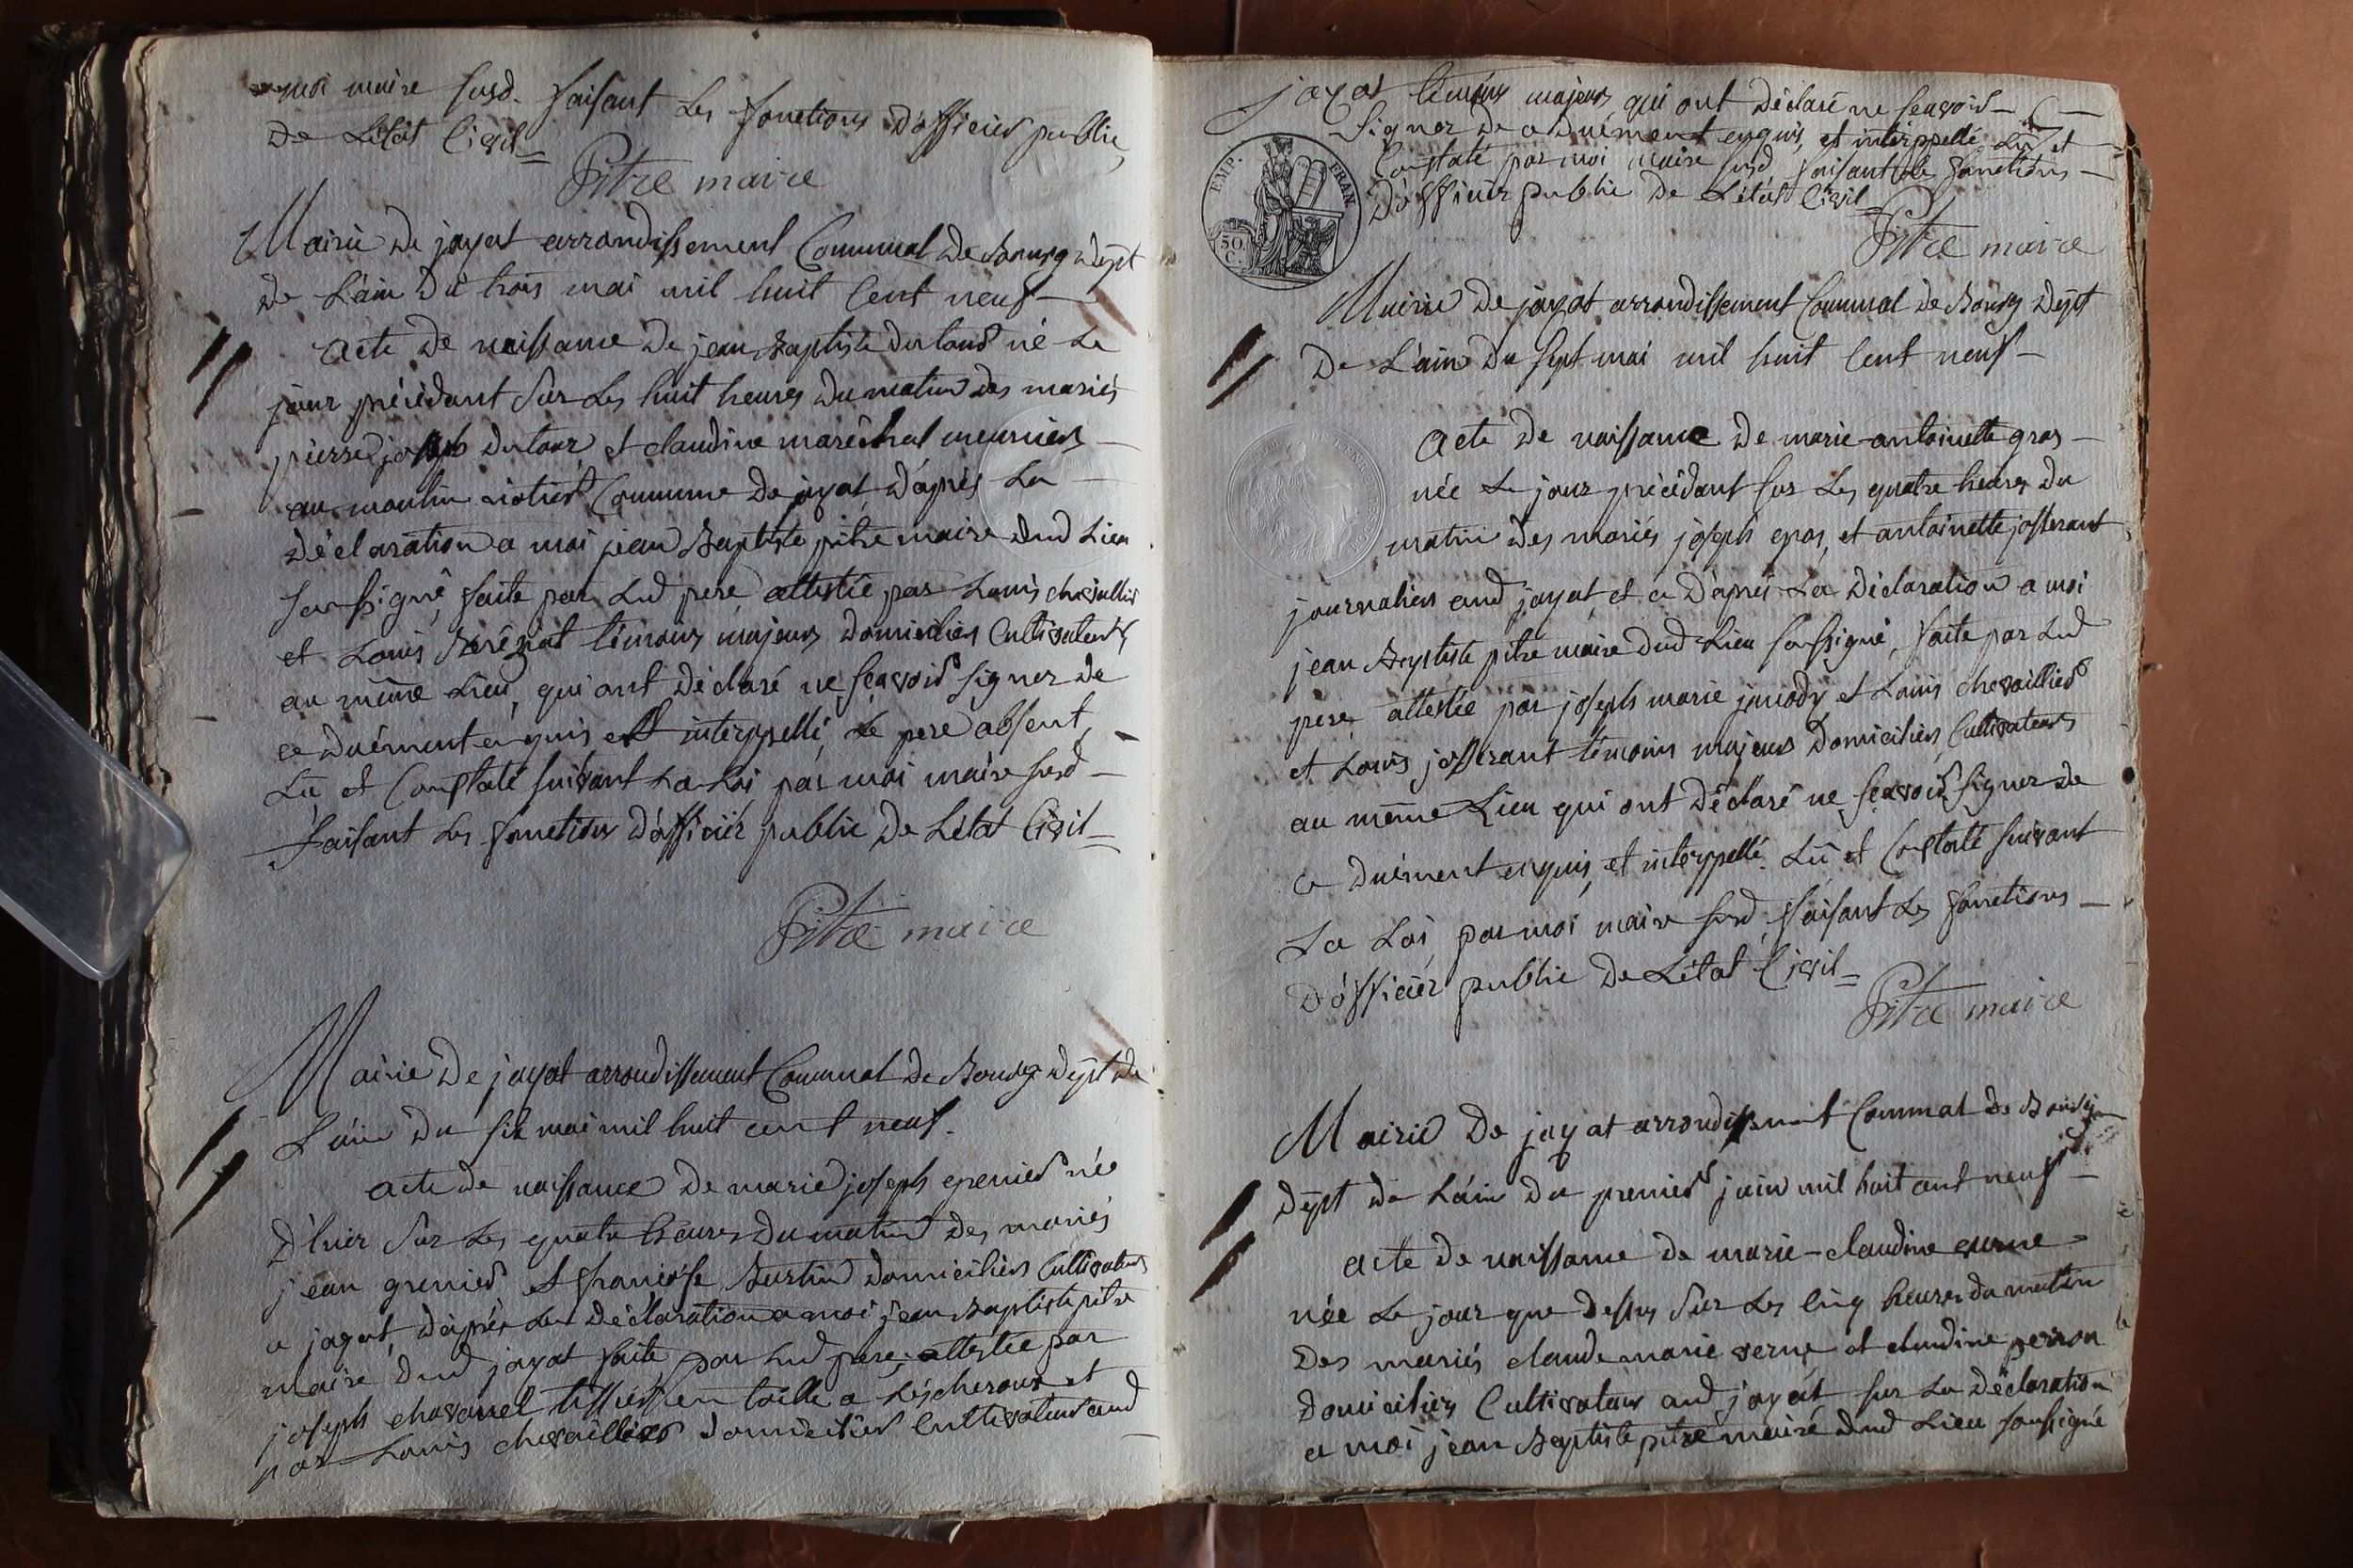 moi maire susd. faisant les fonctions d'officier public
de L'état Civil=
Pitre maire
Mairie de jayat arrondissement Communal de Bourg dept
de L'ain du trois mai mil huit Cent neuf—
acte de naissance de jean Baptiste dutour né Le
jour précédant sur Les huit heures du matin des mariés
pierre joseph dutour et claudine maréchal meuniers —
au moulin Commune de jayat d'après La —
déclaration a moi jean Baptiste pitre maire dud Lieu
soussigné, faite par Lud pere attestée par Louis chevallier
et Louis témoins majeurs domiciliés Cultivateurs
au même Lieu, qui ont déclaré ne scavoir signer de
ce duément enquis et interppellé, Le pere absent,
Lu et Constaté suivant La Loi par moi maire susd —
faisant Les fonctions d'officiér public de L'état Civil=
Pitre maire
Mairie de jayat arrondissement Communal de Bourg dept de
L'ain du six mai mil huit cent neuf.
acte de naissance de marie joseph grenier née
d'hier sur Les quatre heures du matin des mariés
jean grenier et françoise Burtin domiciliés Cultivateurs
a jayat, d'après La déclaration a moi jean Baptiste pitre
maire dud jayat faite par Lud pere, attestée par
joseph chavanel tissier en toille a Léscheroux et
par Louis chevaillier domicilier Cultivateur aud
EMP. FRAN.
50. C.
jayat témoins majeurs qui ont déclaré ne scavoir —
signer de ce duément enquis, et interppellé Lu et —
Constaté par moi maire susd faisant les fonctions —
d'officiér public de L'état Civil=
Pitre maire
Mairie de jayat arrondissement Communal de Bourg dept
de L'ain du sept mai mil huit Cent neuf —
acte de naissance de marie-antoinette gros —
née Le jour précédant sur Les quatre heures du
matin des mariés joseph gros, et antoinette josserant
journaliers aud jayat, et ce d'après La déclaration a moi
jean Baptiste pitre maire dud Lieu soussigné, faite par Lud
pere, attestée par joseph marie janody et Louis chevaillier
et Louis josserant témoins majeurs domiciliés Cultivateurs
au même Lieu qui ont déclaré ne scavoir signer de
ce duément enquis, et interppellé. Lu et Constaté suivant
La Loi, par moi maire susd faisant Les fonctions —
d'officiér public de L'état Civil=
Pitre maire
Mairie de jayat arrondissement Communal de Bourg
dept de L'ain du premier juin mil huit cent neuf —
acte de naissance de marie-claudine verne =
née Le jour que dessus sur Les Cinq heures du matin
des mariés claude marie verne et claudine perron
domiciliés Cultivateurs aud jayat, sur La déclaration
a moi jean Baptiste pitre maire dud Lieu soussigné